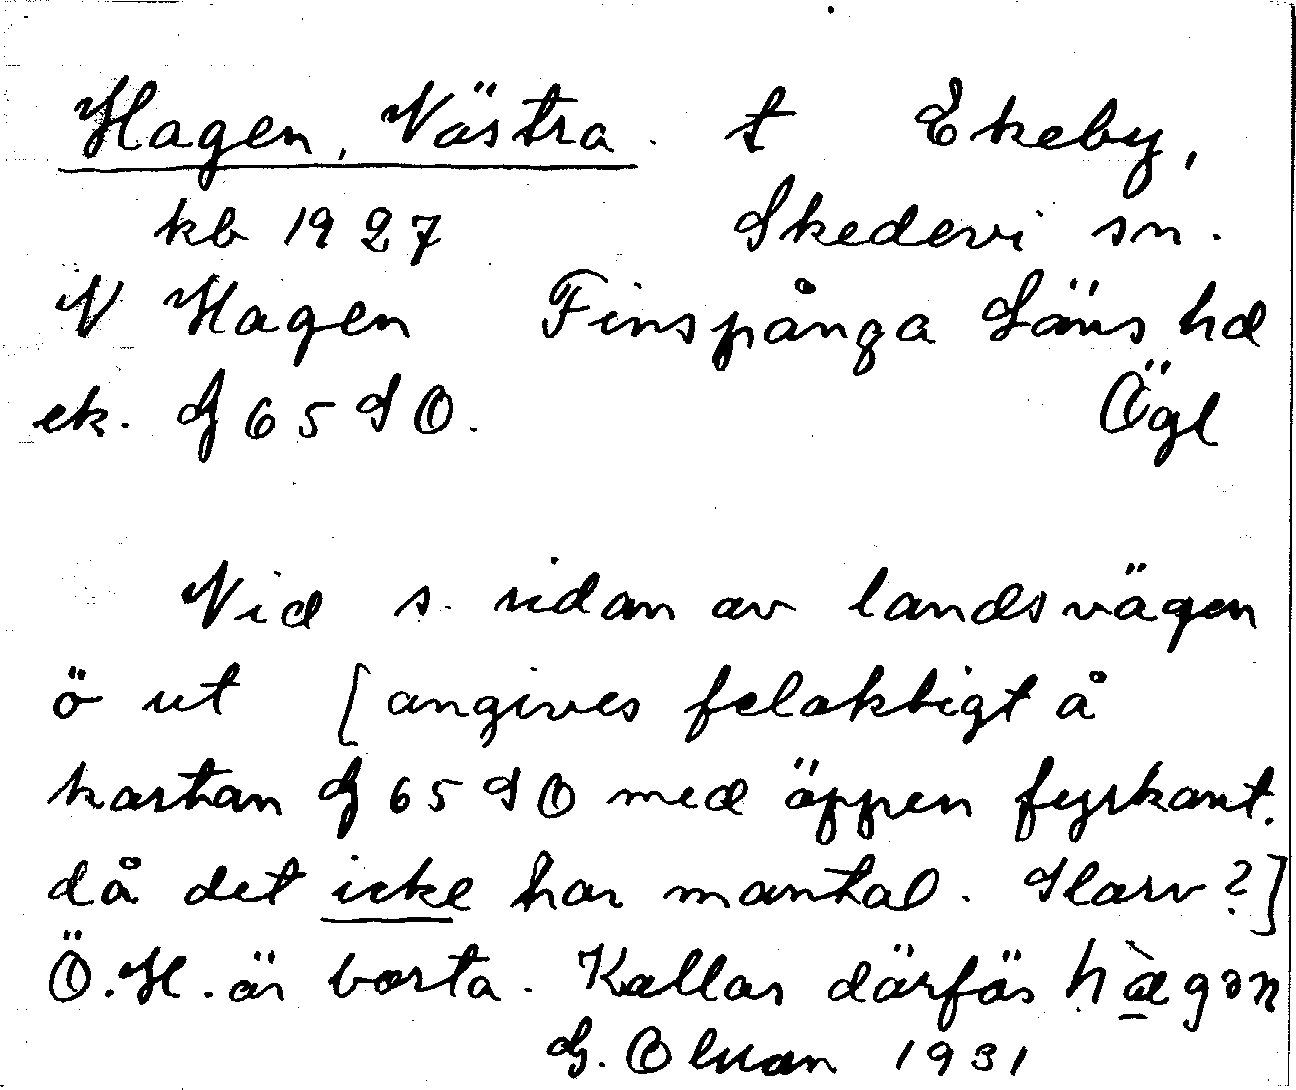 Hagen, Västra. t Ekeby,
kb 1927 Skedevi sn.
V Hagen Finspånga Läns hd
ek. G 65 SO. Ögl
Vid s. sidan av landsvägen
ö ut [angives felaktigt å
kartan G 65 SO med öppen fyrkant.
då det icke har mantal. Slarv?]
Ö.H. är borta. Kallas därför hàgən
G. Olsson 1931